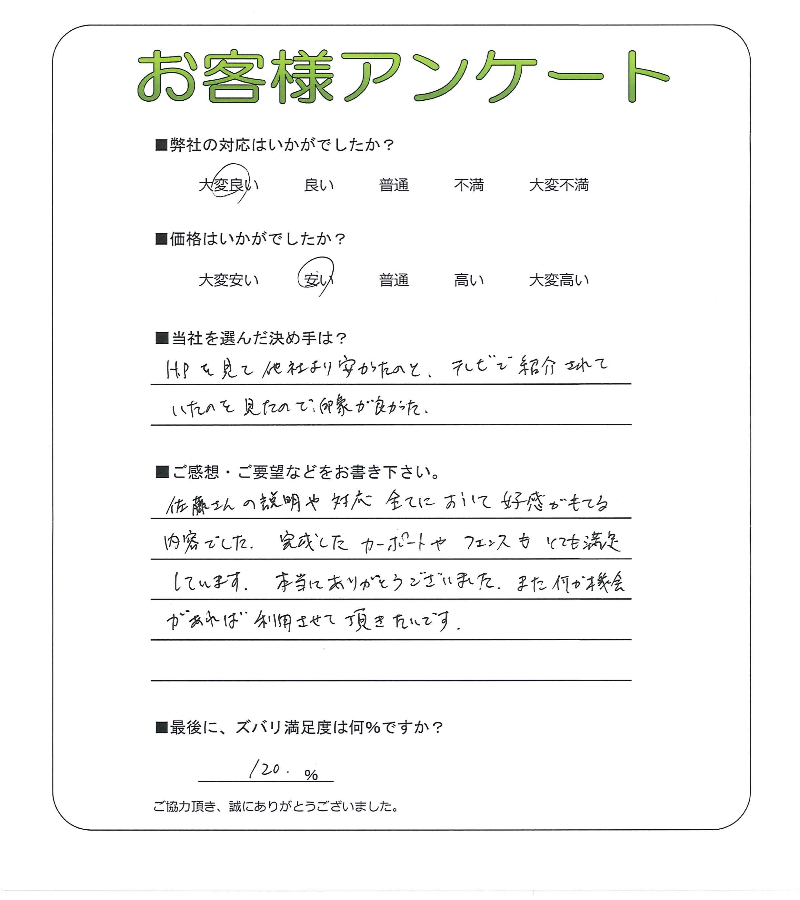 お客様アンケート
■弊社の対応はいかがでしたか？
大変良い 良い 普通 不満 大変不満
■価格はいかがでしたか？
大変安い 安い 普通 高い 大変高い
■当社を選んだ決め手は？
HPを見て他社より安かったのと、テレビで紹介されて
いたのを見たので、印象が良かった。
■ご感想・ご要望などをお書き下さい。
佐藤さんの説明や対応全てにおいて好感がもてる
内容でした。完成したカーポートやフェンスもとても満足
しています。本当にありがとうございました。また何か機会
があれば利用させて頂きたいです。
■最後に、ズバリ満足度は何％ですか？
120. ％
ご協力頂き、誠にありがとうございました。